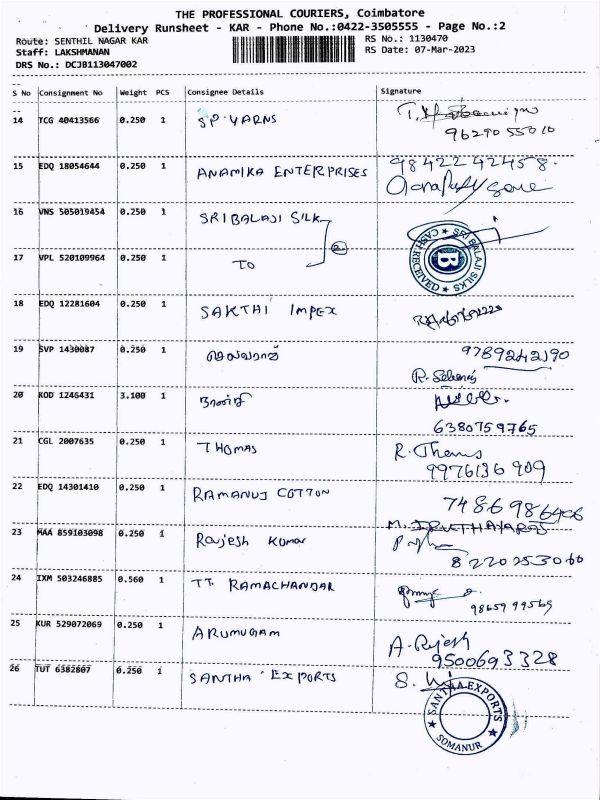 THE PROFESSIONAL COURIERS, Coimbatore
Delivery Runsheet - KAR - Phone No.:0422-3505555 - Page No.:2
Route: SENTHIL NAGAR KAR RS No.: 1130470
Staff: LAKSHMANAN RS Date: 07-Mar-2023
DRS No.: DCJB113047002
S No Consignment No Weight PCS Consignee Details Signature
14 TCG 40413566 0.250 1 SP YARNS
96290 55010
15 EDQ 18054644 0.250 1 ANAMIKA ENTERPRISES 98422 42458.
16 VNS 505019454 0.250 1 SRI BALAJI SILK
SRI BALAJI SILKS
CASH RECEIVED
B
17 VPL 520109964 0.250 1 TO 2
18 EDQ 12281604 0.250 1 SAKTHI IMPEX
19 SVP 1430087 0.250 1 செல்வராஜ் 9789242190
R.
20 KOD 1246431 3.100 1
6380759765
21 CGL 2007635 0.250 1 THOMAS R. Thomas
9976136 909
22 EDQ 14301410 0.250 1 RAMANUJ COTTON 74869 86406
23 MAA 859103098 0.250 1 Rajesh Kumar M. IRUTHAYARAJ
82202 530
24 IXM 503246885 0.560 1 TT. RAMACHANDAR
98659 99569
25 KUR 529072069 0.250 1 ARUMUGAM A. Rajesh
9500693328
26 TUT 6382807 0.250 1 SANTHA EXPORTS S.
SANTHA EXPORTS
SOMANUR